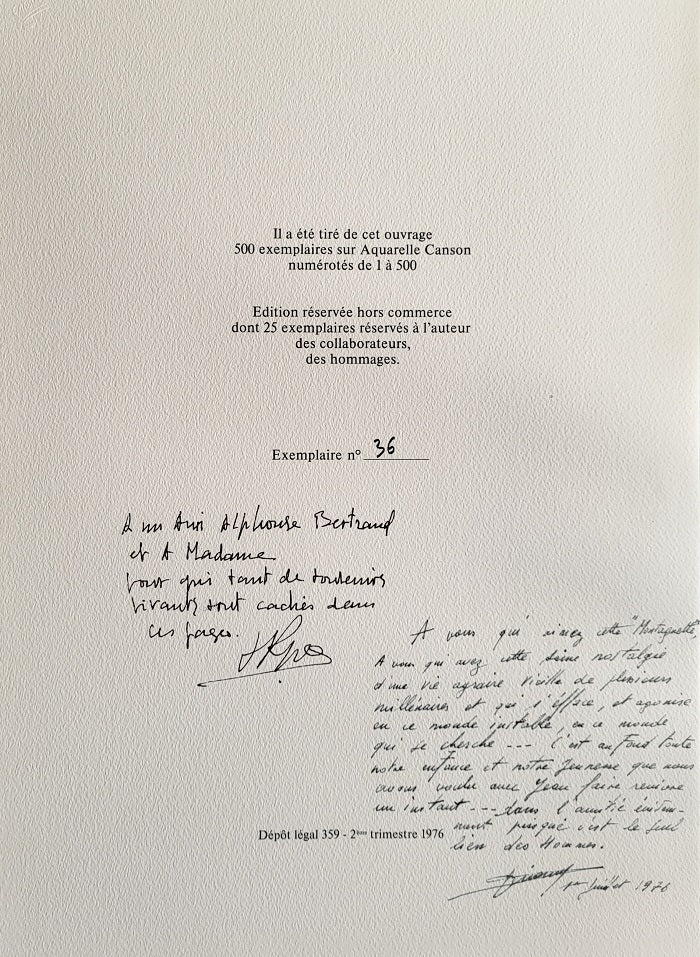 Il a été tiré de cet ouvrage
500 exemplaires sur Aquarelle Canson
numérotés de 1 à 500
Edition réservée hors commerce
dont 25 exemplaires réservés à l'auteur
des collaborateurs,
des hommages.
Exemplaire n° 36
A mon Ami Alphonse Bertrand
et A Madame
pour qui tant de souvenirs
vivants sont cachés dans
ces pages.
A vous qui aimez cette "Montagnette",
A vous qui avez cette saine nostalgie
d'une vie agraire vieille de plusieurs
millénaires et qui s'efface, et agonise
en ce monde instable, en ce monde
qui se cherche --- C'est au fond toute
notre enfance et notre Jeunesse que nous
avons voulu avec Jean faire revivre
un instant --- dans l'amitié évidem-
ment puisque c'est le seul
lien des Hommes.
1er Juillet 1976
Dépôt légal 359 - 2ème trimestre 1976